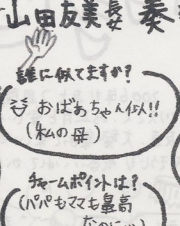 山田友美長女 奏
誰に似てますか?
おばあちゃん似!!
(私の母)
チャームポイントは?
(パパもママも最高
なのに…)